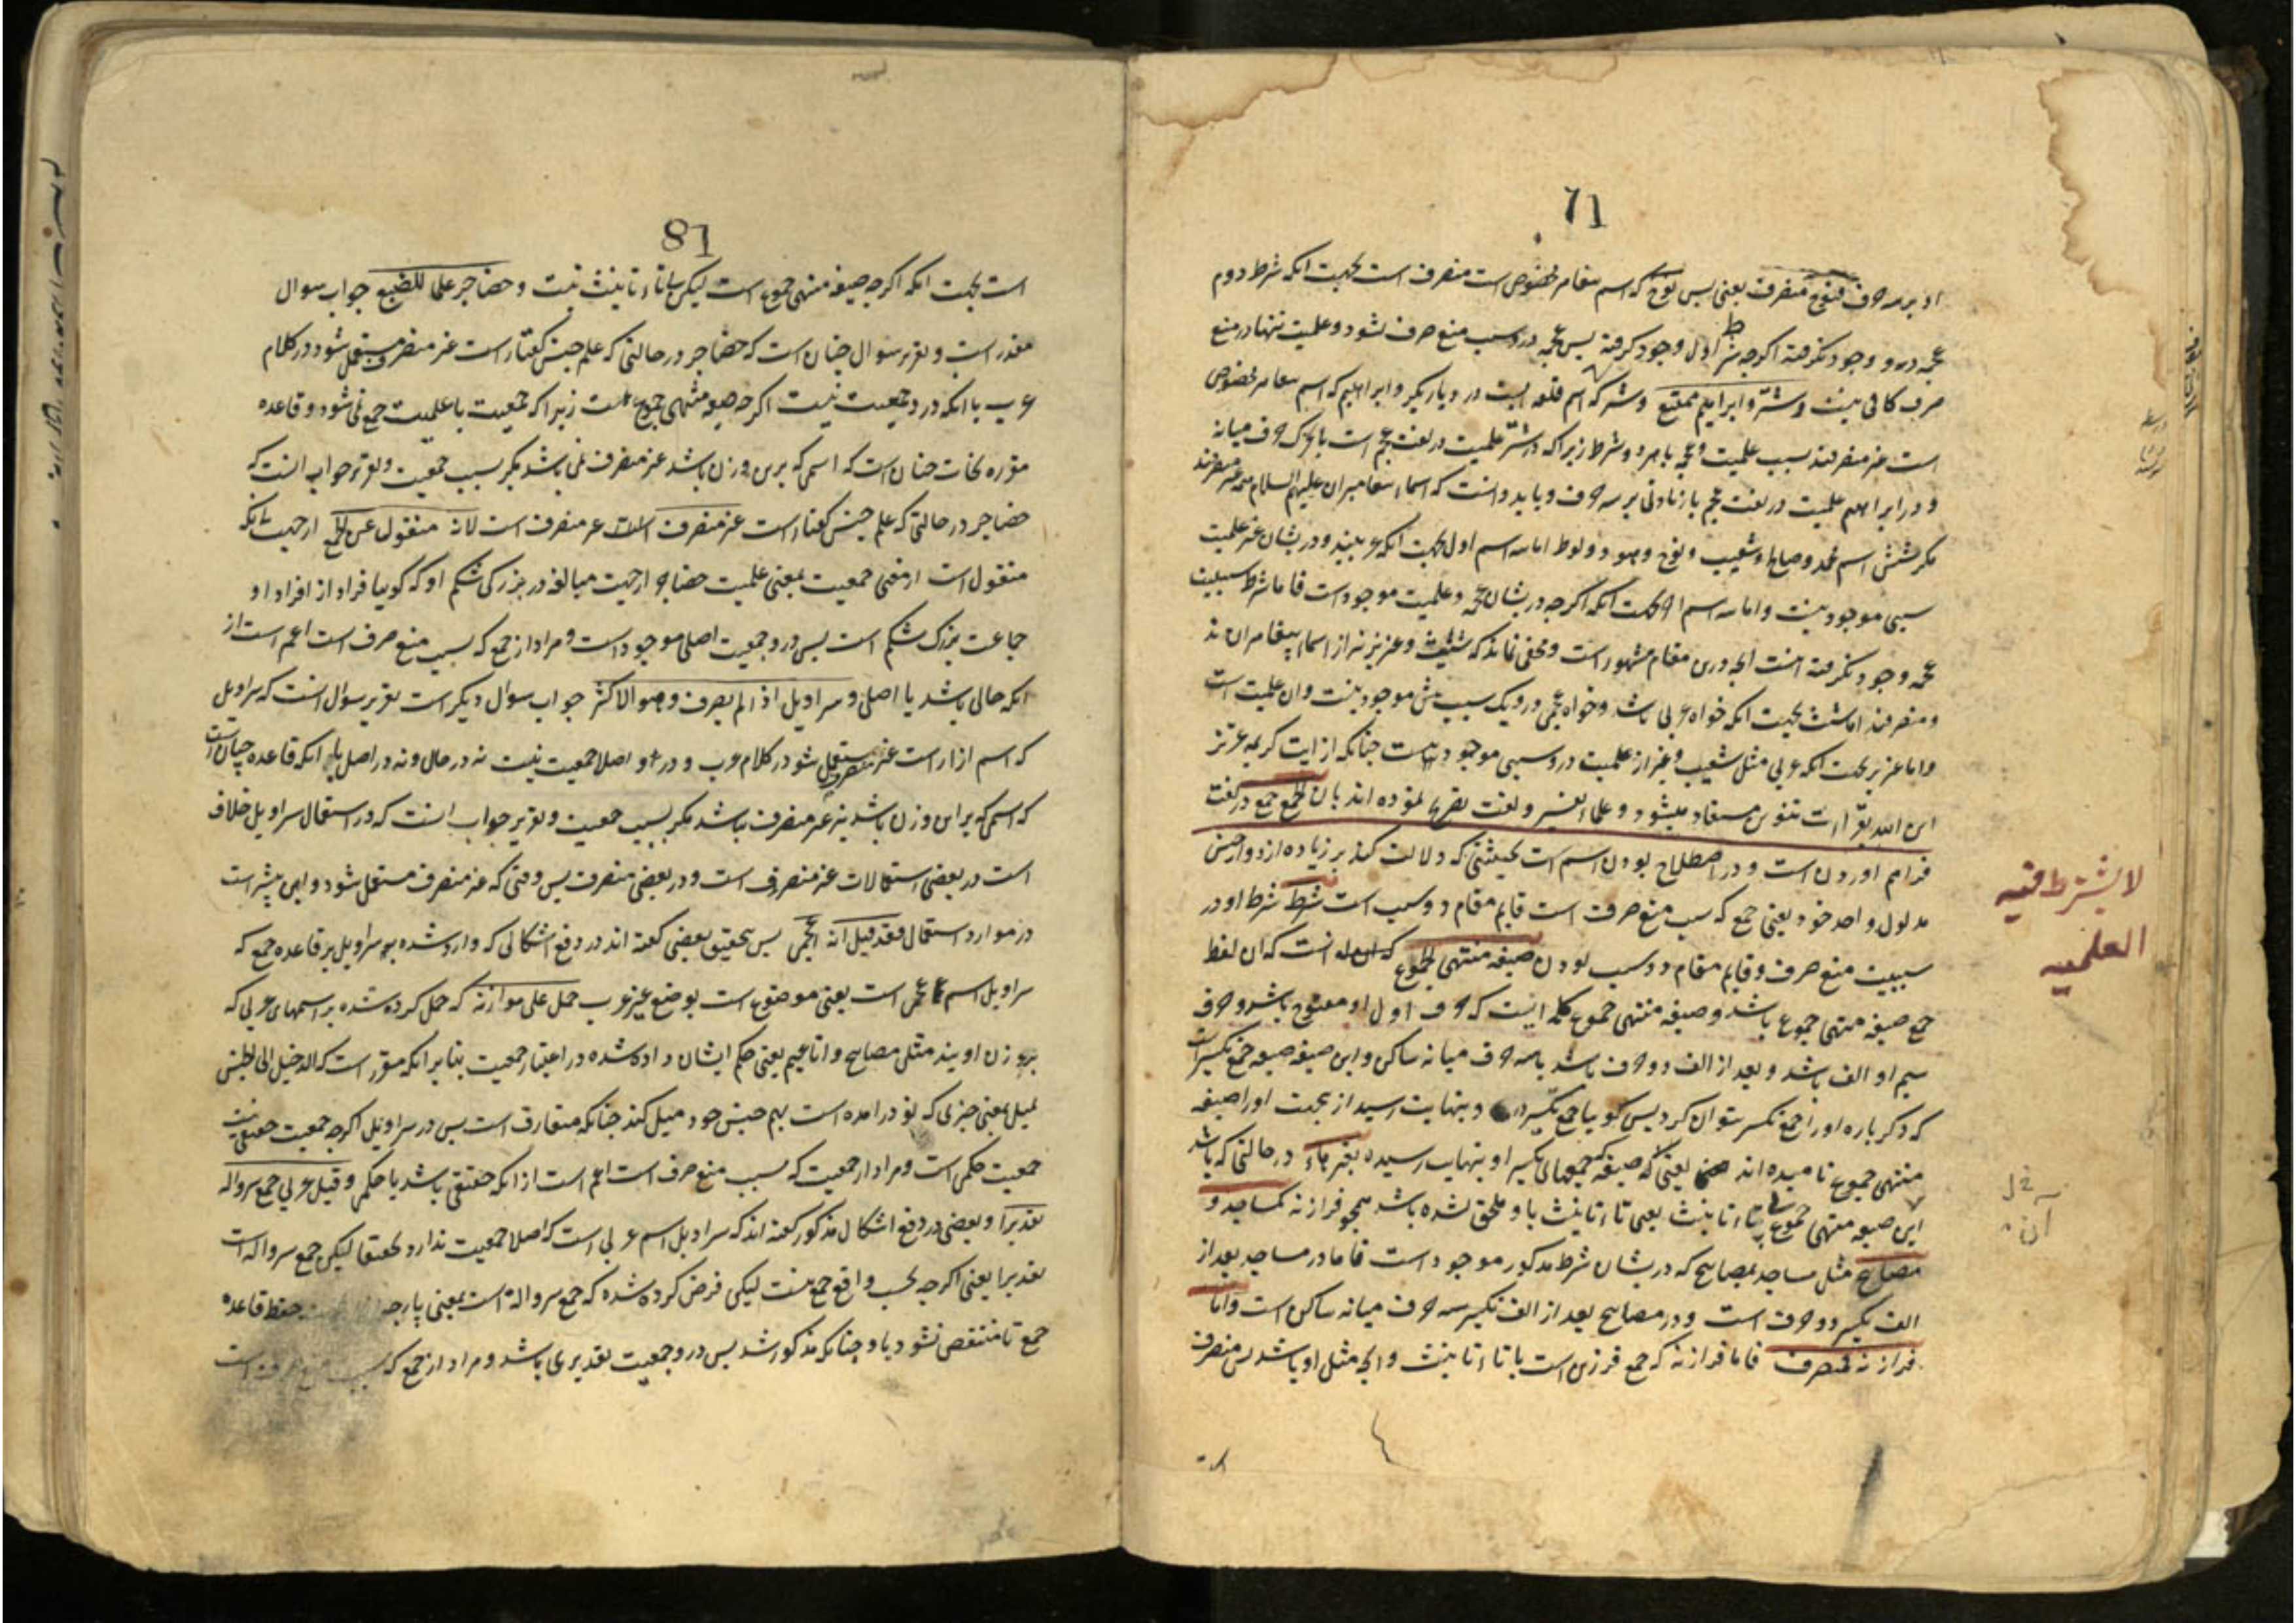 71
او بر سه حرف فنوح منصرف یعنی پس نوح که اسم پیغامبر مخصوص است منصرف است بجهت انکه شرط دوم
عجمه درو وجود نکرفته اکرچه شرط اول وجود کرفته پس عجمه درو سبب منع صرف نشود و علمیت تنها در منع
صرف کافی نیست و شتر و ابراهیم ممتنع و شتر که اسم قلعه ایست در دیار بکر و ابراهیم که اسم پیغامبر مخصوص
است غیر منصرفند بسبب علمیت و عجمه با هر دو شرط زیرا که در شتر علمیت در لغت عجم است با تحرک حرف میانه
و در ابراهیم علمیت در لغت عجم با زیادتی بر سه حرف و باید دانست که اسماء پیغامبران علیهم السلام همه غیر منصرفند
مکر شش اسم محمد و صالح و شعیب و نوح و هود و لوط اما سه اسم اول بجهت انکه عربیند و دریشان غیر علمیت
سببی موجود نیست و اما سه اسم اخر بجهت انکه اکرچه دریشان عجمه و علمیت موجود است فاما شرط سببیت
عجمه وجود نکرفته اینست انچه درین مقام مشهور است و مخفی نماند که شیث و عزیر نیز از اسماء پیغامبران اند
و منصرفند اما شیث بجهت انکه خواه عربی باشد و خواه عجمی درو یک سبب بیش موجود نیست و ان علمیت است
و اما عزیر بجهت انکه عربی مثل شعیب و غیر از علمیت درو سببی موجود نیست چنانکه از ایت کریمه عزیر
ابن الله بقراءت تنوین مستفاد میشود و علماء تفسیر و لغت تصریح نموده اند بان الجمع جمع در لغت
فراهم اوردن است و در اصطلاح بودن اسم است بحیثیتی که دلالت کند بر زیاده از دو از جنس
مدلول واحد خود یعنی جمع که سبب منع صرف است قایم مقام دو سبب است شرطه شرط او در
سببیت منع صرف و قایم مقام دو سبب بودن صیغه منتهی الجموع انست که ان لفظ
جمع صیغه منتهی جموع باشد و صیغه منتهی جموع کلمه ایست که حرف اول او مفتوح باشد و حرف
سیم او الف باشد و بعد از الف دو حرف باشد یا سه حرف میانه ساکن و این صیغه صیغه جمع تکسیر است
که دکر باره او را جمع تکسیر نتوان کرد پس کویا جمع تکسیر درو بنهایت رسید از بجهت او را صیغه
منتهی جموع نامیده اند یعنی که صیغه جمعهای تکسیر او بنهایت رسیده بغیر هاء در حالتی که باشد
این صیغه منتهی جموع بی تاء تانیث یعنی تاء تانیث باو ملحق نشده باشد همچو فرازنه کمساجد و
مصابیح مثل مساجد و مصابیح که دریشان شرط مذکور موجود است فاما در مساجد بعد از
الف تکسیر دو حرف است و در مصابیح بعد از الف تکسیر سه حرف میانه ساکن است و اما
فرازنه فمنصرف فاما فرازنه که جمع فرزین است با تاء تانیث و انچه مثل او باشد پس منصرف
است
لا یشترط فیه
العلمیه
81
است بجهت انکه اکرچه صیغه منتهی جموع است لیکن با تاء تانیث نیست و حضاجر علما للضبع جواب سوال
مقدر است و تقریر سوال چنان است که حضاجر در حالتی که علم جنس کفتار است غیر منصرف مستعمل شود در کلام
عرب با انکه درو جمعیت نیست اکرچه صیغه منتهی جموع است زیرا که جمعیت با علمیت جمع نمی شود و قاعده
مقرره نحات چنان است که اسمی که برین وزن باشد غیر منصرف نمی باشد مکر بسبب جمعیت و تقریر جواب انست که
حضاجر در حالتی که علم جنس کفتار است غیر منصرف است لانه منقول عن الجمع از جهت انکه
منقول است از معنی جمعیت بمعنی علمیت حضاجر از جهت مبالغه در بزرکی شکم او که کوییا فراد از افراد او
جماعت بزرک شکم است پس درو جمعیت اصلی موجود است و مراد از جمع که سبب منع صرف است اعم است از
انکه حالی باشد یا اصلی و سراویل اذا لم یصرف و هو الاکثر جواب سوال دیکر است تقریر سوال انست که سراویل
که اسم ازار است غیر منصرف مستعمل شود در کلام عرب و درو اصلا جمعیت نیست نه در حال و نه در اصل با انکه قاعده چنان است
که اسمی که بر این وزن باشد غیر منصرف نباشد مکر بسبب جمعیت و تقریر جواب انست که در استعمال سراویل خلاف
است در بعضی استعمالات غیر منصرف است و در بعضی منصرف پس وقتی که غیر منصرف مستعمل شود و این بیشتر است
در موارد استعمال فقد قیل انه اعجمی پس بتحقیق بعضی کفته اند در دفع اشکالی که وارد شده بر سراویل بر قاعده جمع که
سراویل اسم عجمی است یعنی موضوع است بوضع غیر عرب حمل علی موازنه که حمل کرده شده بر اسمهای عربی که
بر وزن اویند مثل مصابیح و اناعیم یعنی حکم ایشان داده شده در اعتبار جمعیت بنابر انکه مقرر است که الدخیل الی الجنس
یمیل یعنی چیزی که نو درامده است بهم جنس خود میل کند چنانکه متعارف است پس در سراویل اکرچه جمعیت حقیقی نیست
جمعیت حکمی است و مراد از جمعیت که سبب منع صرف است اعم است از انکه حقیقی باشد یا حکمی و قیل عربی جمع سرواله
تقدیرا و بعضی در دفع اشکال مذکور کفته اند که سراویل اسم عربی است که اصلا جمعیت ندارد تحقیقا لیکن جمع سرواله است
تقدیرا یعنی اکرچه بحسب واقع جمع نیست لیکن فرض کرده شده که جمع سرواله است بمعنی پارچه حفظ قاعده
جمع تا منتقض نشود باو چنانکه مذکور شد پس درو جمعیت تقدیری باشد و مراد از جمع که سبب منع صرف است